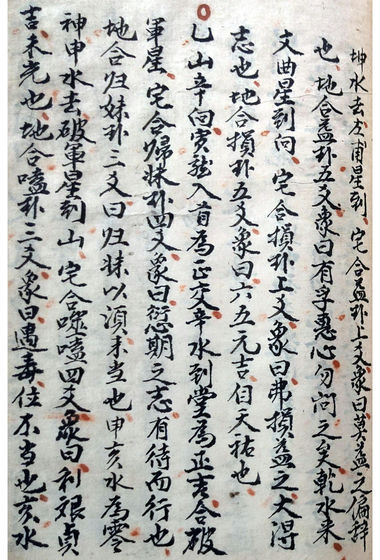 坤水去左甫星到 宅合益卦上爻象曰莫益之偏辞
也 地合益卦五爻象曰有孚惠心勿问之矣乾水来
文曲星到向 宅合損卦上爻象曰弗損益之大得
志也 地合損卦五爻象曰六五元吉自天祐也
乙山辛向寅龍入首為正交辛水到堂為正吉合破
軍星 宅合歸妹卦四爻象曰愆期之志有待而行也
地合归妹卦三爻曰归妹以須未当也申亥水為零
神申水去破軍星到山 宅合噬嗑四爻象曰利艰貞
吉未光也 地合嗑卦三爻象曰遇毒位不当也亥水